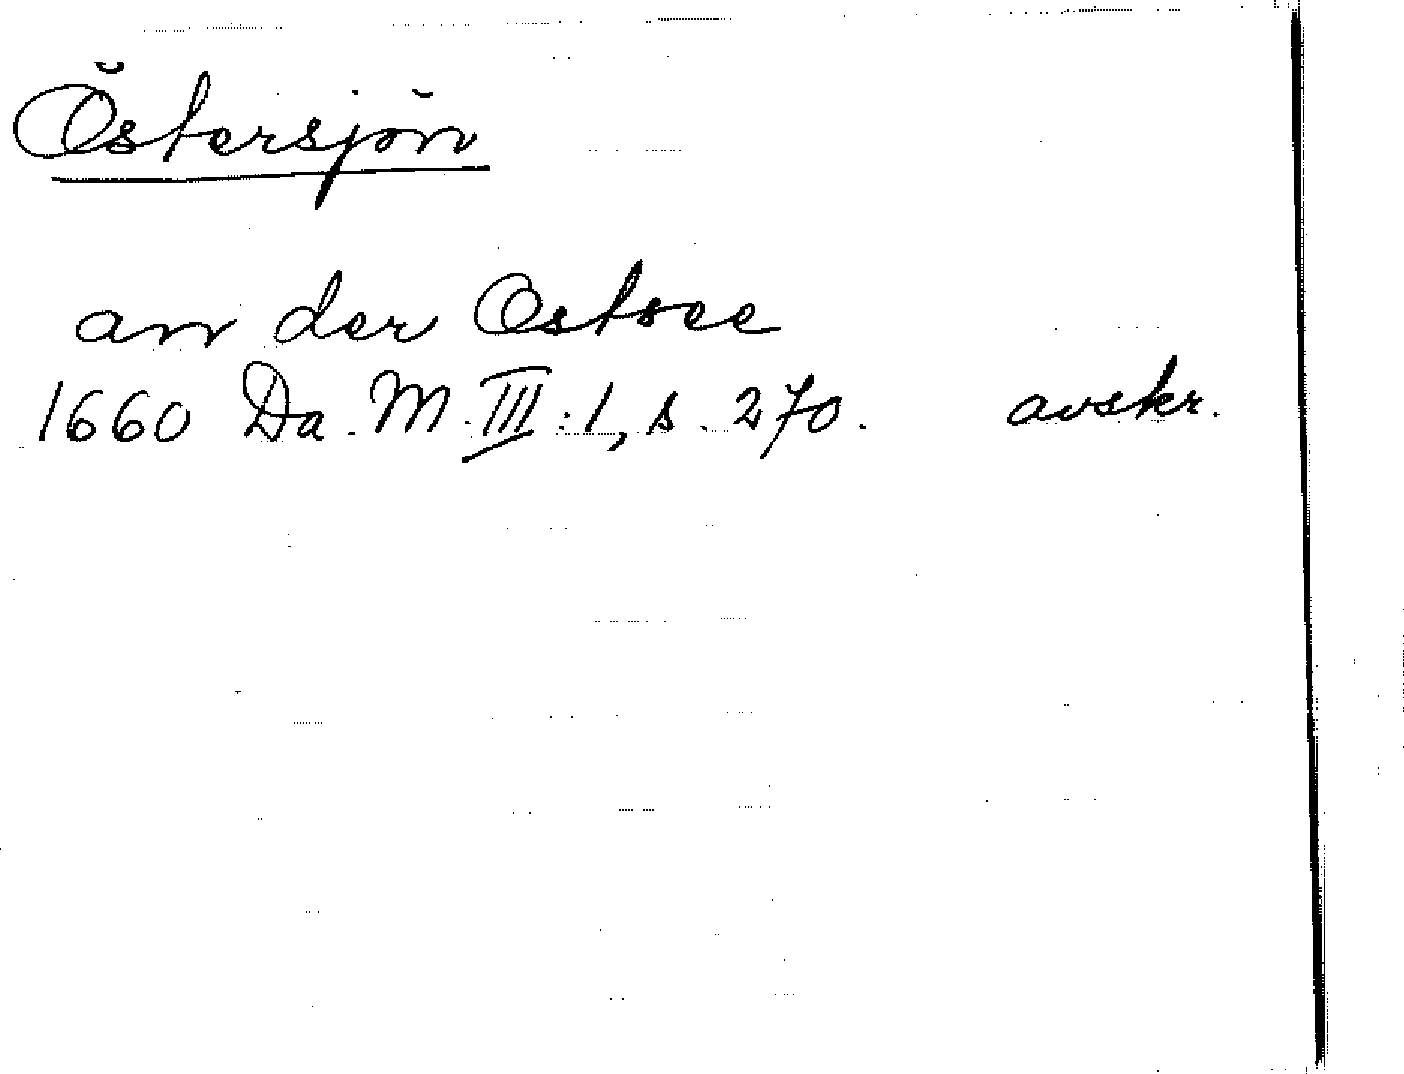 Östersjön
an der Ostsee
1660 Da. M. III:1, s. 270. avskr.